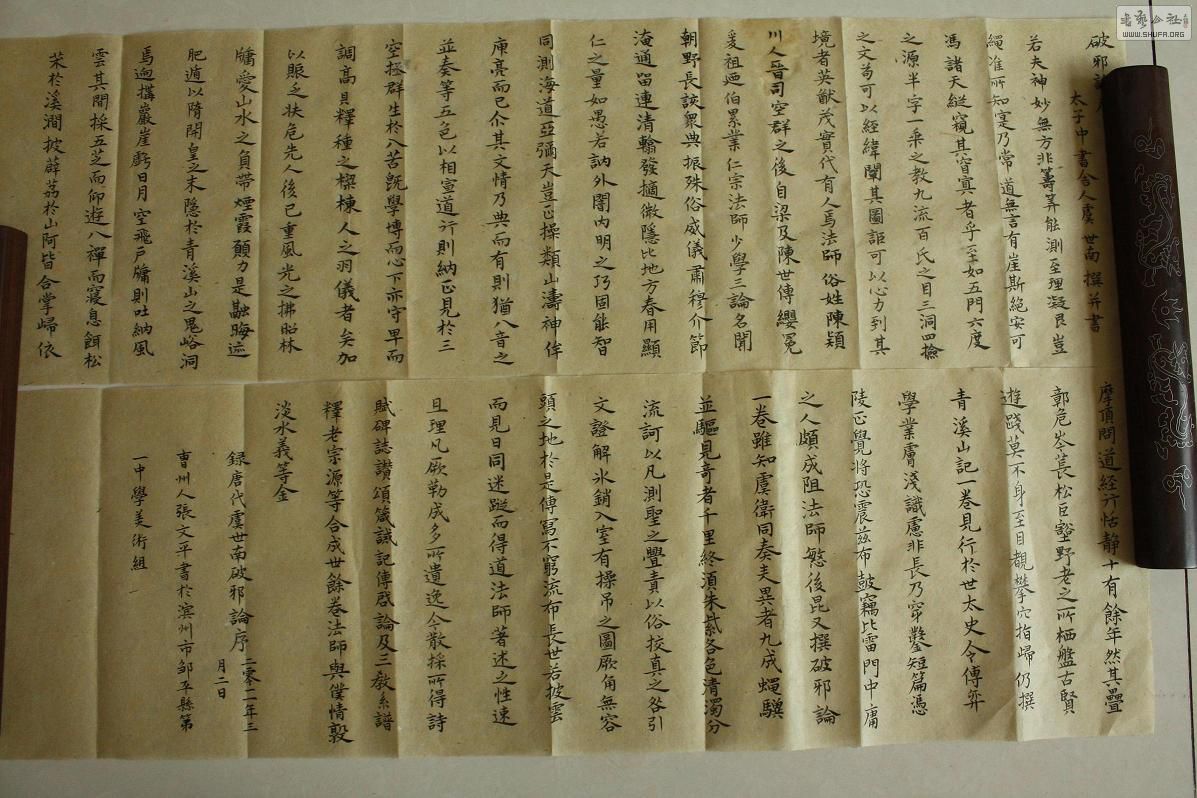 书艺公社
WWW.SHUFA.ORG
破邪論
太子中書舍人虞世南撰并書
若夫神妙無方非籌筭能測至理凝邈豈
繩准所知寔乃常道無言有崖斯絕安可
馮諸天縱窺其窅冥者乎至如五門六度
之源半字一乘之教九流百氏之目三洞四撿
之文苟可以經緯闡其圖詎可以心力到其
境者英猷茂實代有人焉法師俗姓陳潁
川人晉司空群之後自梁及陳世傳纓冕
爰祖廼伯累業仁宗法師少學三論名聞
朝野長該衆典振殊俗威儀肅穆介節
淹通留連清翰發摘微隱比地方春用顯
仁之量如愚若訥外闇內明之巧固能智
同測海道亞彌天豈止操類山濤神侔
庾亮而已介其文情乃典而有則猶八音之
並奏等五色以相宣道行則納正見於三
空拯群生於八苦既學博而心下亦守卑而
調高貝釋種之樑棟人之羽儀者矣加
以賑乏扶危先人後己重風光之拂照林
牖愛山水之負帶煙霞願力是融晦迹
肥遁以隋開皇之末隱於青溪山之鬼峪洞
焉迥搆巖崖虧日月空飛戶牖則吐納風
雲其間採五芝而仰遊八禪而寢息餌松
茶於溪澗披薜荔於山阿皆合掌歸依
摩頂問道經行恬静十有餘年然其疊
鄣危岑萇松巨壑野老之所栖盤古賢
遊踐莫不身至目觀攀穴指歸仍撰
青溪山記一卷見行於世太史令傅弈
學業膚淺識慮非長乃穿鑿短篇憑
陵正覺將恐震兹布鼓竊比雷門中庸
之人頗成阻法師愍後昆又撰破邪論
一卷雖知虞衛同奏夫異者九成蠅驥
並驅見奇者千里終湏朱紫各色清濁分
流訶以凡測聖之舋責以俗挍真之咎引
文證解氷銷入室有操吊之圖厥角無容
頭之地於是傳寫不窮流布長世若披雲
而見日同迷蹤而得道法師著述之性速
且理凡厥勒成多所遺逸今散採所得詩
賦碑誌讚頌箴誡記傳啟論及三教系譜
釋老宗源等合成世餘卷法師與僕情敦
淡水義等金
録唐代虞世南破邪論序二零一一年三
月二日
曹州人張文平書於滨州市邹平縣第
一中學美術組